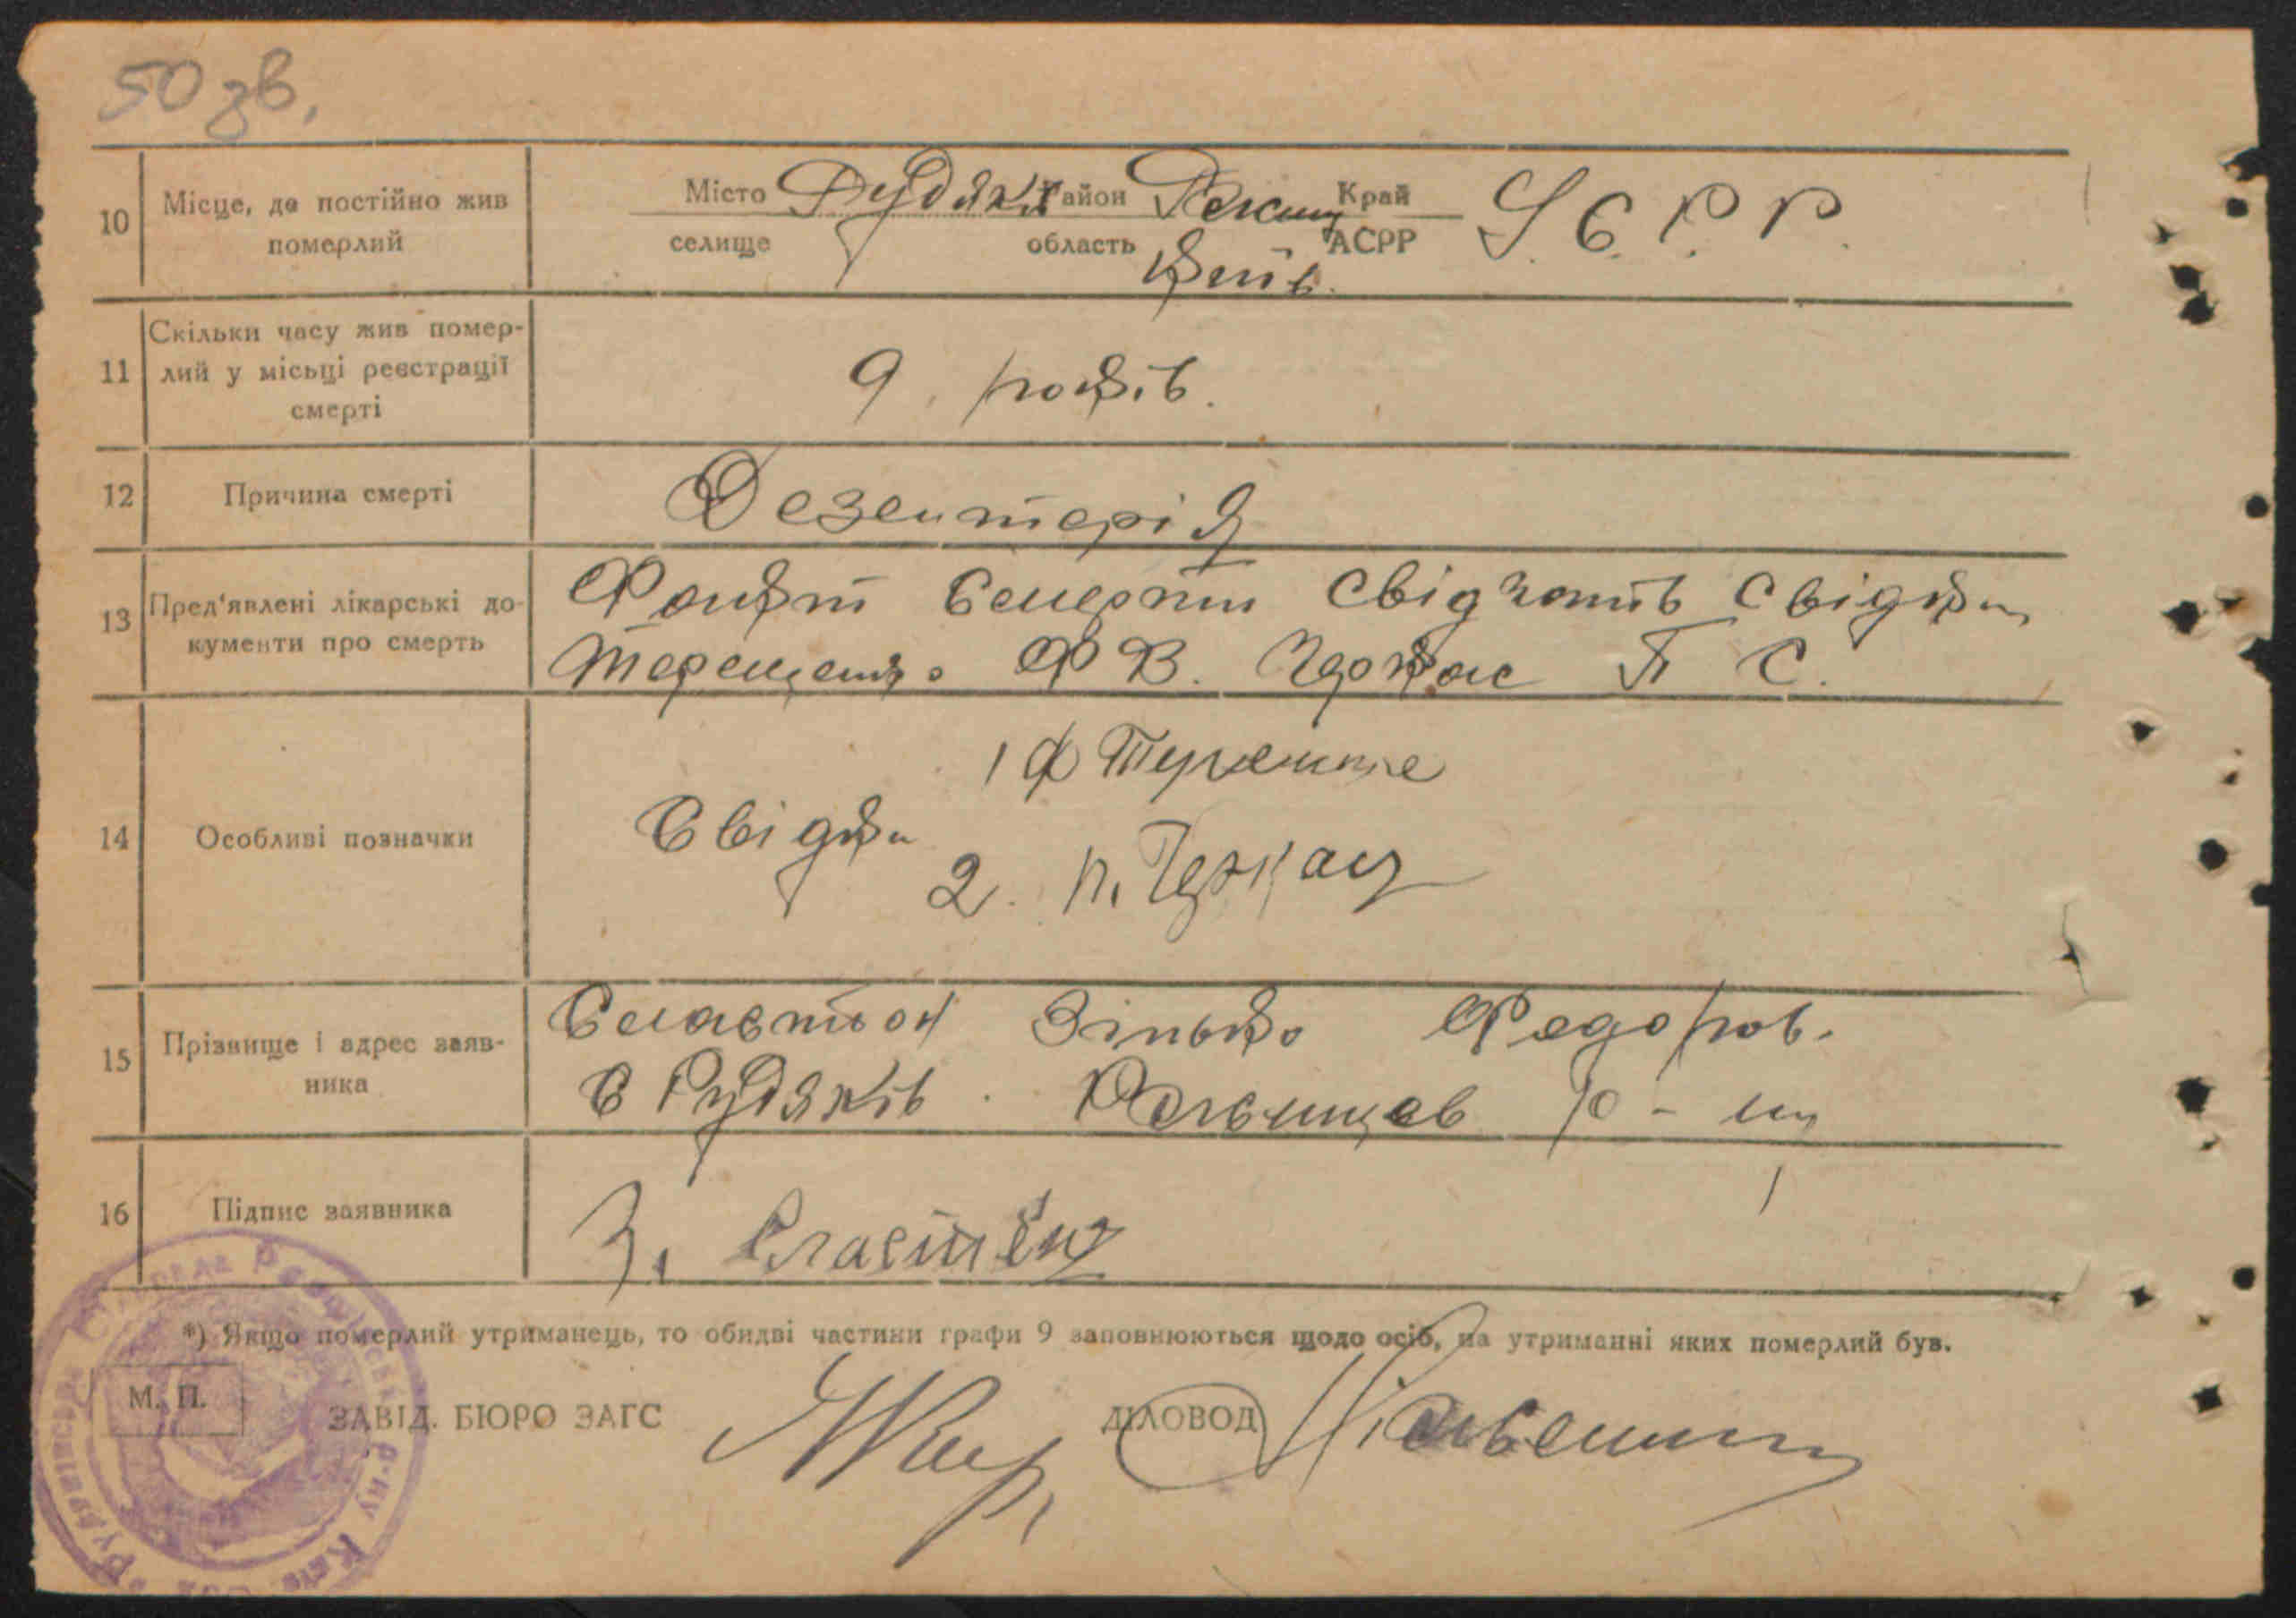 50 зв.
10 Місце, де постійно жив померлий
Місто Рудяків Район Ржищ Край У.С.Р.Р.
селище область Київ. АСРР
11 Скільки часу жив помер-
лий у місьці реєстрації
смерті
9. років.
12 Причина смерті Дезентерія
13 Пред'явлені лікарські до-
кументи про смерть
Факт Смерти свідчать свідки
Терещенко Ф В. Черкас П С.
14 Особливі позначки
1 Ф Терещенко
Свідки
2. П. Черкас
15 Прізвище і адрес заяв-
ника
Сластьон Зінько Федоров.
С Рудяків. Ржищев р-ну
16 Підпис заявника З. Сластьон
*) Якщо померлий утриманець, то обидві частини графи 9 заповнюються щодо осіб, на утриманні яких померлий був.
М. П.
ЗАВІД. БЮРО ЗАГС ДІЛОВОД